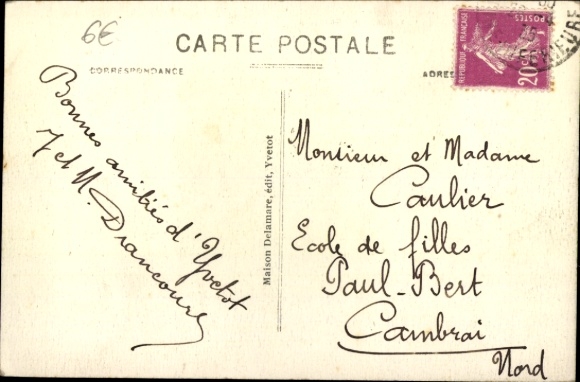 6€
CARTE POSTALE
CORRESPONDANCE
ADRES
Bonnes amitiés d'Yvetot
J et M. Drancourt
Maison Delamare, édit, Yvetot
REPUBLIQUE FRANÇAISE
POSTES
20c
Monsieur et Madame
Caulier
Ecole de filles
Paul-Bert
Cambrai
Nord